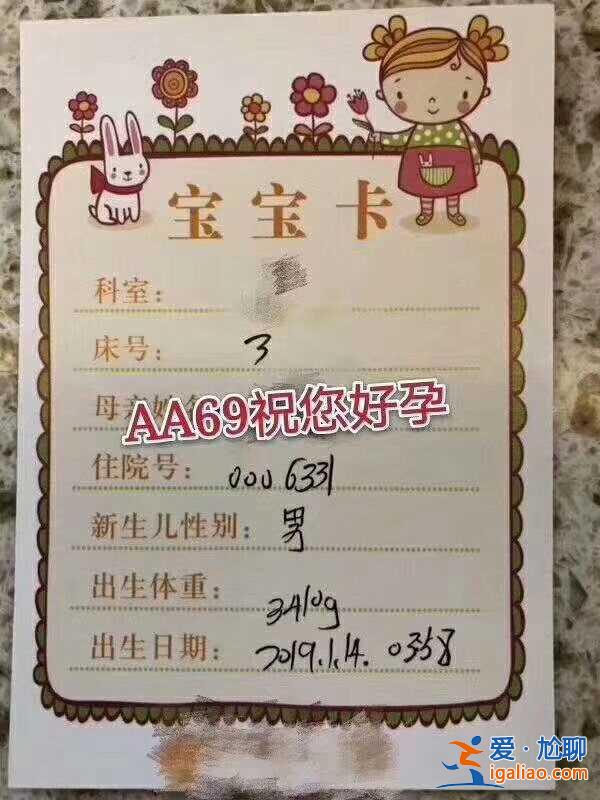 宝宝卡
科室：
床号： 3
母亲姓名
AA69祝您好孕
住院号： 0006331
新生儿性别： 男
出生体重： 3410g
出生日期： 2019.1.14. 0358
爱·尬聊
igaliao.com